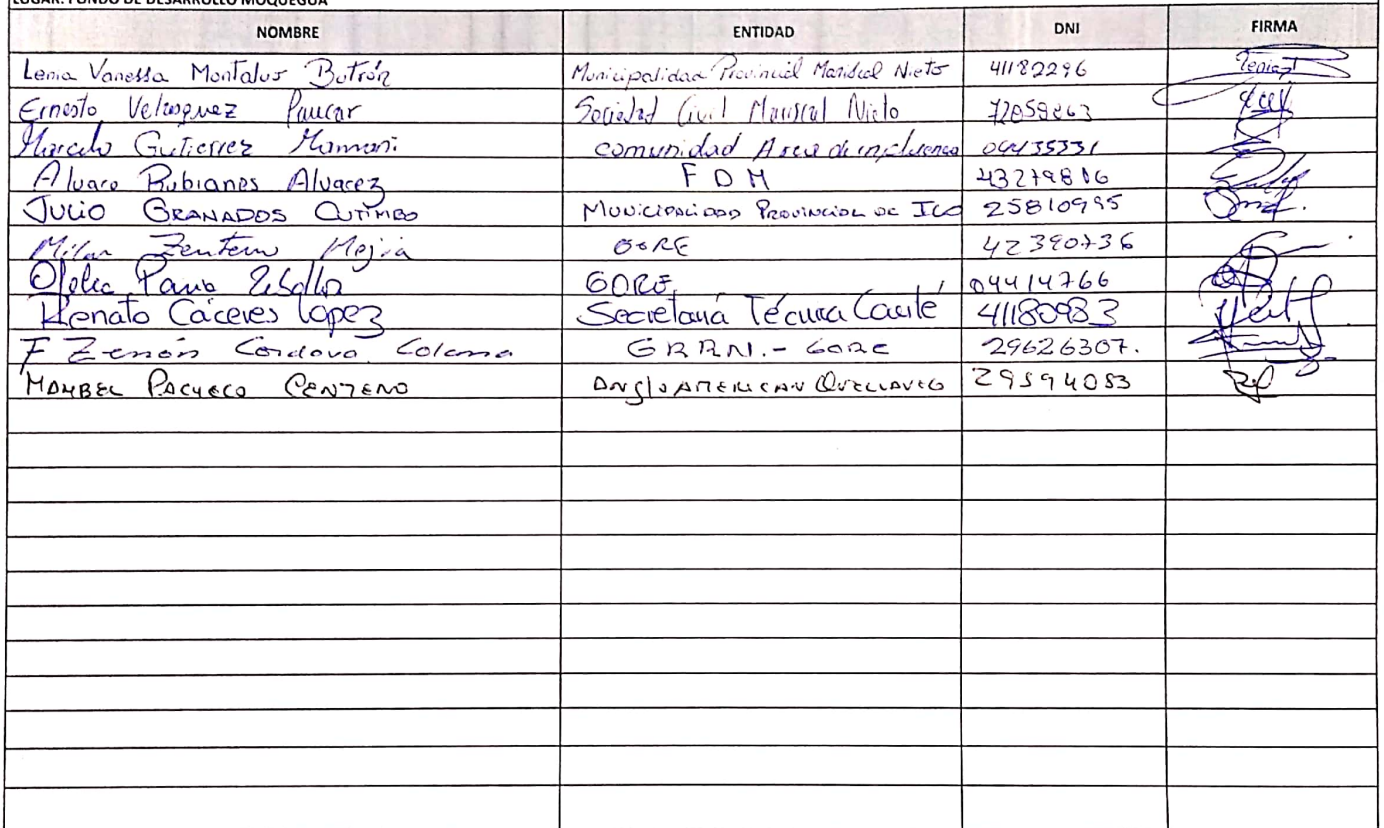 LUGAR: FONDO DE DESARROLLO MOQUEGUA
NOMBRE ENTIDAD DNI FIRMA
Lenia Vanessa Montalvo Butrón Municipalidad Provincial Mariscal Nieto 41182296
Ernesto Velasquez Paucar Sociedad Civil Mariscal Nieto
Marcelo Gutierrez Mamani comunidad Area de influencia 04435331
Alvaro Rubianes Alvarez F D M 43279816
JULIO GRANADOS CUTIMBO MUNICIPALIDAD PROVINCIAL DE ILO 25810995
Milan Zenteno Mejia GORE 42390736
GORE 04414766
Renato Cáceres Lopez Secretaría Técnica 41180983
F Zenón Cordova Coloma GRRN.- GORE 29626307.
MAYBEL PACHECO CENTENO ANGLOAMERICAN QUELLAVECO 29594053